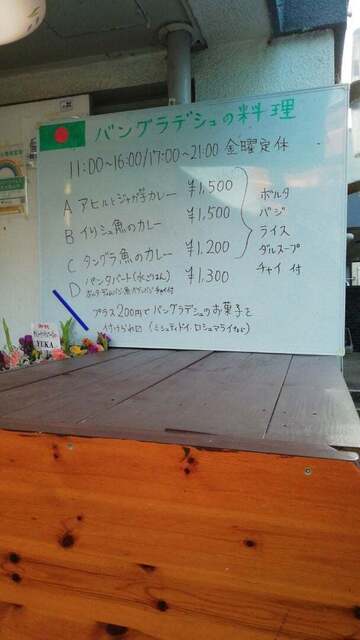 バングラデシュの料理
11:00~16:00/17:00~21:00 金曜定休
A アヒルとジャガ芋カレー ¥1,500
B イリシュ魚のカレー ¥1,500
C タングラ魚のカレー ¥1,200
D パンタバート(水ごはん) ¥1,300
チャイ付
ボルタ
バジ
ライス
ダルスープ
チャイ 付
プラス200円でバングラデシュのお菓子を
付けられ〼 (ミシュティドイ, ロシュマライなど)
YUKA